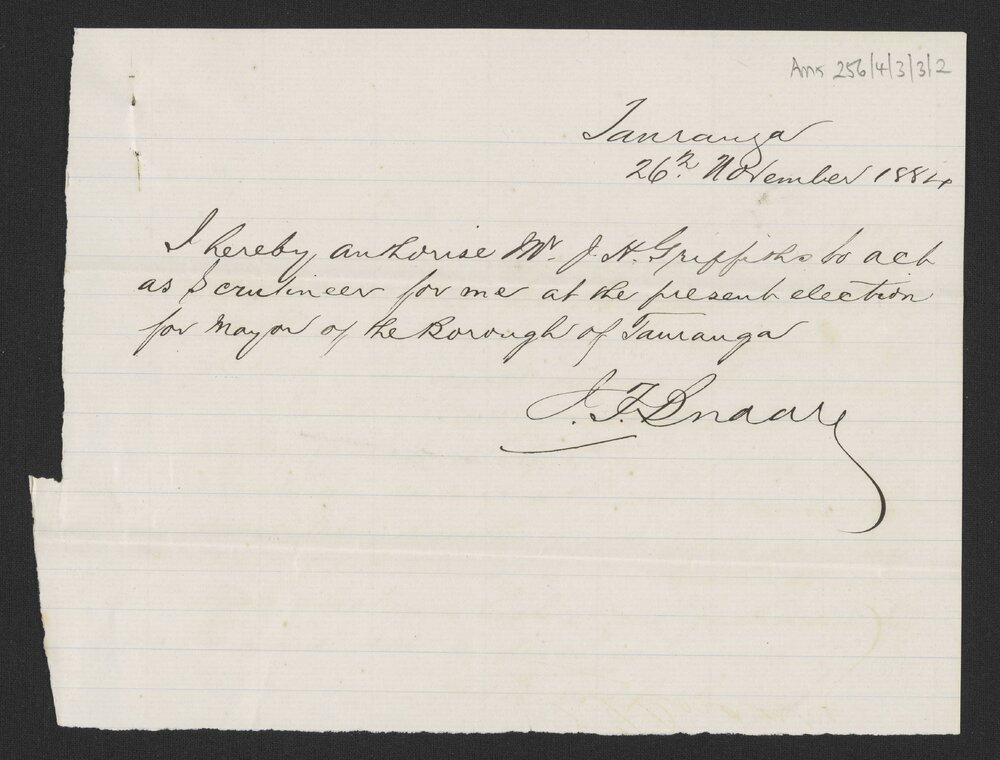 Ams 256/4/3/3/2
Tauranga
26th November 1884
I hereby authorise Mr. J H. Griffiths to act
as Scrutineer for me at the present election
for Mayor of the Borough of Tauranga
J. F.